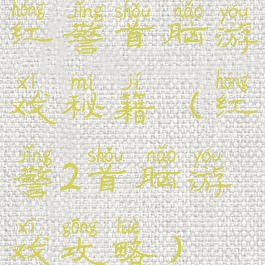 hóng jǐng shǒu nǎo yóu
红警首脑游
xì mì jí hóng
戏秘籍（红
jǐng shǒu nǎo yóu
警2首脑游
xì gōng lüè
戏攻略）